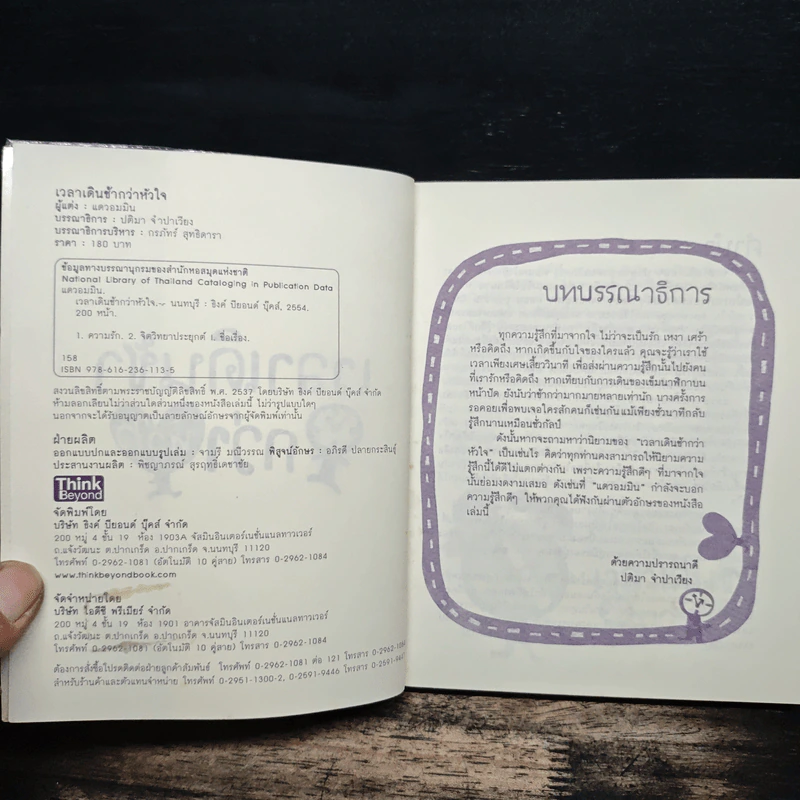 เวลาเดินช้ากว่าหัวใจ
ผู้แต่ง : แตวอมมิน
บรรณาธิการ : ปติมา จำปาเวียง
บรรณาธิการบริหาร : กรภัทร์ สุทธิดารา
ราคา : 180 บาท
ข้อมูลทางบรรณานุกรมของสำนักหอสมุดแห่งชาติ
National Library of Thailand Cataloging in Publication Data
แตวอมมิน.
เวลาเดินช้ากว่าหัวใจ.-- นนทบุรี : ธิงค์ บียอนด์ บุ๊คส์, 2554.
200 หน้า.
1. ความรัก. 2. จิตวิทยาประยุกต์ I. ชื่อเรื่อง.
158
ISBN 978-616-236-113-5
สงวนลิขสิทธิ์ตามพระราชบัญญัติลิขสิทธิ์ พ.ศ. 2537 โดยบริษัท ธิงค์ บียอนด์ บุ๊คส์ จำกัด
ห้ามลอกเลียนไม่ว่าส่วนใดส่วนหนึ่งของหนังสือเล่มนี้ ไม่ว่ารูปแบบใดๆ
นอกจากจะได้รับอนุญาตเป็นลายลักษณ์อักษรจากผู้จัดพิมพ์เท่านั้น
ฝ่ายผลิต
ออกแบบปกและออกแบบรูปเล่ม : จามรี มณีวรรณ พิสูจน์อักษร : อภิรดี ปลายกระสินธุ์
ประสานงานผลิต : พิชญาภรณ์ สุรฤทธิ์เดชาชัย
Think
Beyond
จัดพิมพ์โดย
บริษัท ธิงค์ บียอนด์ บุ๊คส์ จำกัด
200 หมู่ 4 ชั้น 19 ห้อง 1903A จัสมินอินเตอร์เนชั่นแนลทาวเวอร์
ถ.แจ้งวัฒนะ ต.ปากเกร็ด อ.ปากเกร็ด จ.นนทบุรี 11120
โทรศัพท์ 0-2962-1081 (อัตโนมัติ 10 คู่สาย) โทรสาร 0-2962-1084
www.thinkbeyondbook.com
จัดจำหน่ายโดย
บริษัท ไอดีซี พรีเมียร์ จำกัด
200 หมู่ 4 ชั้น 19 ห้อง 1901 อาคารจัสมินอินเตอร์เนชั่นแนลทาวเวอร์
ถ.แจ้งวัฒนะ ต.ปากเกร็ด อ.ปากเกร็ด จ.นนทบุรี 11120
โทรศัพท์ 0-2962-1081 (อัตโนมัติ 10 คู่สาย) โทรสาร 0-2962-1084
ต้องการสั่งซื้อโปรดติดต่อฝ่ายลูกค้าสัมพันธ์ โทรศัพท์ 0-2962-1081 ต่อ 121 โทรสาร 0-2962-1084
สำหรับร้านค้าและตัวแทนจำหน่าย โทรศัพท์ 0-2951-1300-2, 0-2591-9446 โทรสาร 0-2591-9445
บทบรรณาธิการ
ทุกความรู้สึกที่มาจากใจ ไม่ว่าจะเป็นรัก เหงา เศร้า
หรือคิดถึง หากเกิดขึ้นกับใจของใครแล้ว คุณจะรู้ว่าเราใช้
เวลาเพียงเศษเสี้ยววินาที เพื่อส่งผ่านความรู้สึกนั้นไปยังคน
ที่เรารักหรือคิดถึง หากเทียบกับการเดินของเข็มนาฬิกาบน
หน้าปัด ยังนับว่าช้ากว่ามากมายหลายเท่านัก บางครั้งการ
รอคอยเพื่อพบเจอใครสักคนก็เช่นกัน แม้เพียงชั่วนาทีกลับ
รู้สึกนานเหมือนชั่วกัลป์
ดังนั้นหากจะถามหาว่านิยามของ "เวลาเดินช้ากว่า
หัวใจ" เป็นเช่นไร คิดว่าทุกท่านคงสามารถให้นิยามความ
รู้สึกนี้ได้ดีไม่แตกต่างกัน เพราะความรู้สึกดีๆ ที่มาจากใจ
นั้นย่อมงดงามเสมอ ดังเช่นที่ "แตวอมมิน" กำลังจะบอก
ความรู้สึกดีๆ ให้พวกคุณได้ฟังกันผ่านตัวอักษรของหนังสือ
เล่มนี้
ด้วยความปรารถนาดี
ปติมา จำปาเวียง